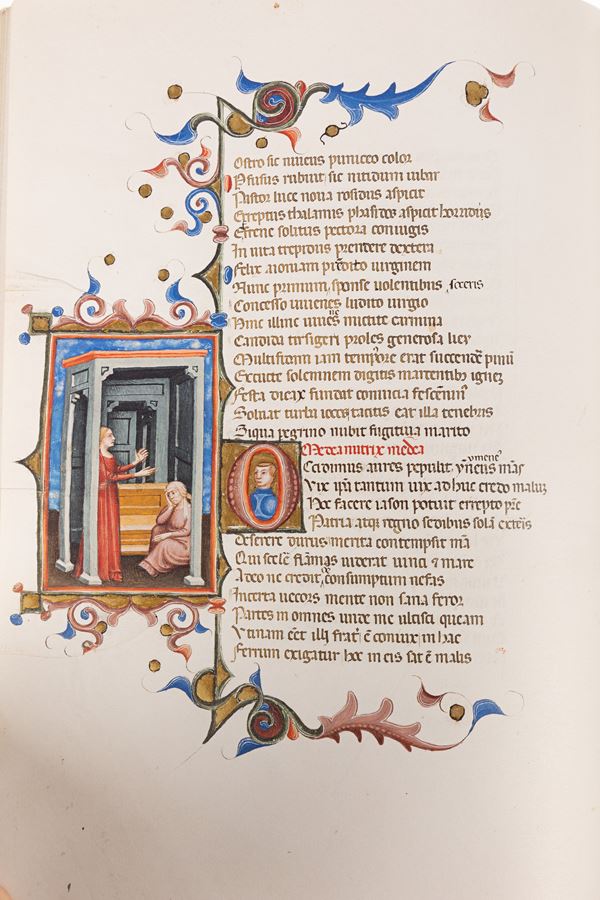 Ostro sic niueus puniceo color
Pfusus rubuit sic nitidum iubar
Pastor luce noua rosidus aspicit
Ereptus thalamis phasidos aspicit horridus
Effrene solitus pectora coniugis
In uita trepidus prendere dextera
Felix aioniam predito uirginem
Nunc primum sponse uolentibus soceris
Concesso iuuenes ludito iurgio
Hinc illinc iuuenes mictite carmina
Candida tirsigeri proles generosa liey
Multifidam iam tempore erat succende pinū
Excute solemnem digitis marcentibꝫ igneꝫ
Festa dicax fundat conuicia fescēninꝰ
Soluat turba iocos tacitis eat illa tenebris
Siqua pegrino nubit fugitiua marito
Medea nutrix medea
Occidimus aures pepulit ymeneus mās
Vix ip̄a tantum uix adhuc credo maluꝫ
Hoc facere iason potuit errepto pr̄e
Patria atqꝫ regno sedibus solā exteris
Deserere durus merita contempsit mā
Qui scele flāmas uiderat uinci ⁊ mare
Adeo ne credit oē consumptum nefas
Incerta uecors mente non sana feror
Partes in omnes unde me ulcisci queam
Vtinam eēt illi frat̄ ē coniux in hac
Ferrum exigatur hoc in eis sat ē malis